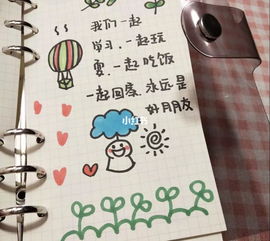 我们一起
学习、一起玩
耍、一起吃饭
一起回家、永远是
好月朋友
小红书